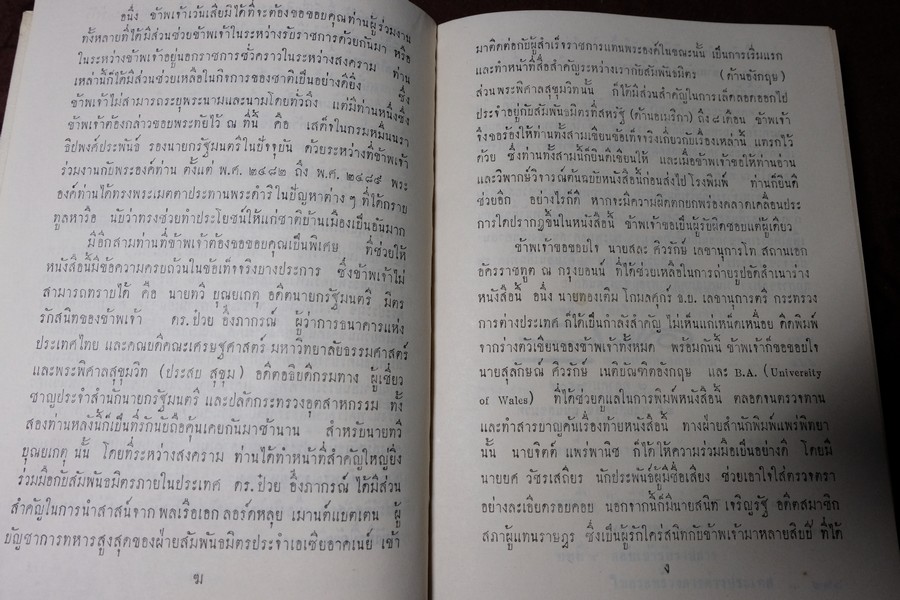 อนึ่ง ข้าพเจ้าเว้นเสียมิได้ที่จะต้องขอขอบคุณท่านผู้ร่วมงาน
ทั้งหลายที่ได้มีส่วนช่วยข้าพเจ้าในระหว่างรับราชการด้วยกันมา หรือ
ในระหว่างข้าพเจ้าอยู่นอกราชการชั่วคราวในระหว่างสงคราม ท่าน
เหล่านี้ก็ได้มีส่วนช่วยเหลือในกิจการของชาติเป็นอย่างดียิ่ง ซึ่ง
ข้าพเจ้าไม่สามารถระบุพระนามและนามโดยทั่วถึง แต่มีท่านหนึ่งซึ่ง
ข้าพเจ้าต้องกล่าวขอบพระทัยไว้ ณ ที่นี้ คือ เสด็จในกรมหมื่นนรา
ธิปพงศ์ประพันธ์ รองนายกรัฐมนตรีในปัจจุบัน ด้วยระหว่างที่ข้าพเจ้า
ร่วมงานกับพระองค์ท่าน ตั้งแต่ พ.ศ. ๒๔๘๒ ถึง พ.ศ. ๒๔๘๕ พระ
องค์ท่านได้ทรงพระเมตตาประทานพระดำริในปัญหาต่าง ๆ ที่ได้กราบ
ทูลหารือ นับว่าทรงช่วยทำประโยชน์ให้แก่ชาติบ้านเมืองเป็นอันมาก
มีอีกสามท่านที่ข้าพเจ้าต้องขอขอบคุณเป็นพิเศษ ที่ช่วยให้
หนังสือนี้มีข้อความครบถ้วนในข้อเท็จจริงบางประการ ซึ่งข้าพเจ้าไม่
สามารถทราบได้ คือ นายทวี บุณยเกตุ อดีตนายกรัฐมนตรี มิตร
รักสนิทของข้าพเจ้า ดร.ป๋วย อึ๊งภากรณ์ ผู้ว่าการธนาคารแห่ง
ประเทศไทย และคณบดีคณะเศรษฐศาสตร์ มหาวิทยาลัยธรรมศาสตร์
และพระพิศาลสุขุมวิท (ประสบ สุขุม) อดีตอธิบดีกรมทาง ผู้เชี่ยว
ชาญประจำสำนักนายกรัฐมนตรี และปลัดกระทรวงอุตสาหกรรม ทั้ง
สองท่านหลังนี้ก็เป็นที่รักนับถือคุ้นเคยกันมาช้านาน สำหรับนายทวี
บุณยเกตุ นั้น โดยที่ระหว่างสงคราม ท่านได้ทำหน้าที่สำคัญใหญ่ยิ่ง
ร่วมมือกับสัมพันธมิตรภายในประเทศ ดร.ป๋วย อึ๊งภากรณ์ ได้มีส่วน
สำคัญในการนำสาส์นจาก พลเรือเอก ลอร์ดหลุย เมานต์แบตเตน ผู้
บัญชาการทหารสูงสุดของฝ่ายสัมพันธมิตรประจำเอเซียอาคเนย์ เข้า
ฆ
มาติดต่อกับผู้สำเร็จราชการแทนพระองค์ในขณะนั้น เป็นการเริ่มแรก
และทำหน้าที่สื่อสำคัญระหว่างเรากับสัมพันธมิตร (ด้านอังกฤษ)
ส่วนพระพิศาลสุขุมวิทนั้น ก็ได้มีส่วนสำคัญในการเล็ดลอดออกไป
ประจำอยู่กับสัมพันธมิตรที่สหรัฐ (ด้านอเมริกา) ถึง ๘ เดือน ข้าพเจ้า
จึงขอร้องให้ท่านทั้งสามเขียนข้อเท็จจริงเกี่ยวกับเรื่องเหล่านี้ แทรกไว้
ด้วย ซึ่งท่านทั้งสามนี้ก็ยินดีเขียนให้ และเมื่อข้าพเจ้าขอให้ท่านอ่าน
และวิพากษ์วิจารณ์ต้นฉบับหนังสือนี้ก่อนส่งไปโรงพิมพ์ ท่านก็ยินดี
ช่วยอีก อย่างไรก็ดี หากจะมีความผิดตกบกพร่องคลาดเคลื่อนประ
การใดปรากฏขึ้นในหนังสือนี้ ข้าพเจ้าขอเป็นผู้รับผิดชอบแต่ผู้เดียว
ข้าพเจ้าขอขอบใจ นายสละ ศิวรักษ์ เลขานุการโท สถานเอก
อัครราชทูต ณ กรุงบอนน์ ที่ได้ช่วยเหลือในการถ่ายรูปอัดสำเนาร่าง
หนังสือนี้ อนึ่ง นายทองเติม โกมลศุกร์ ธ.บ. เลขานุการตรี กระทรวง
การต่างประเทศ ก็ได้เป็นกำลังสำคัญ ไม่เห็นแก่เหน็ดเหนื่อย ดีดพิมพ์
จากร่างตัวเขียนของข้าพเจ้าทั้งหมด พร้อมกันนี้ ข้าพเจ้าก็ขอขอบใจ
นายสุลักษณ์ ศิวรักษ์ เนติบัณฑิตอังกฤษ และ B.A. (University
of Wales) ที่ได้ช่วยดูแลในการพิมพ์หนังสือนี้ ตลอดจนตรวจทาน
และทำสารบาญค้นเรื่องท้ายหนังสือนี้ ทางฝ่ายสำนักพิมพ์แพร่พิทยา
นั้น นายจิตต์ แพร่พานิช ก็ได้ให้ความร่วมมือเป็นอย่างดี โดยมี
นายยศ วัชรเสถียร นักประพันธ์ผู้มีชื่อเสียง ช่วยเอาใจใส่ตรวจตรา
อย่างละเอียดรอบคอบ นอกจากนี้ก็มีนายสนิท เจริญรัฐ อดีตสมาชิก
สภาผู้แทนราษฎร ซึ่งเป็นผู้รักใคร่สนิทกับข้าพเจ้ามาหลายสิบปี ที่ได้
ง